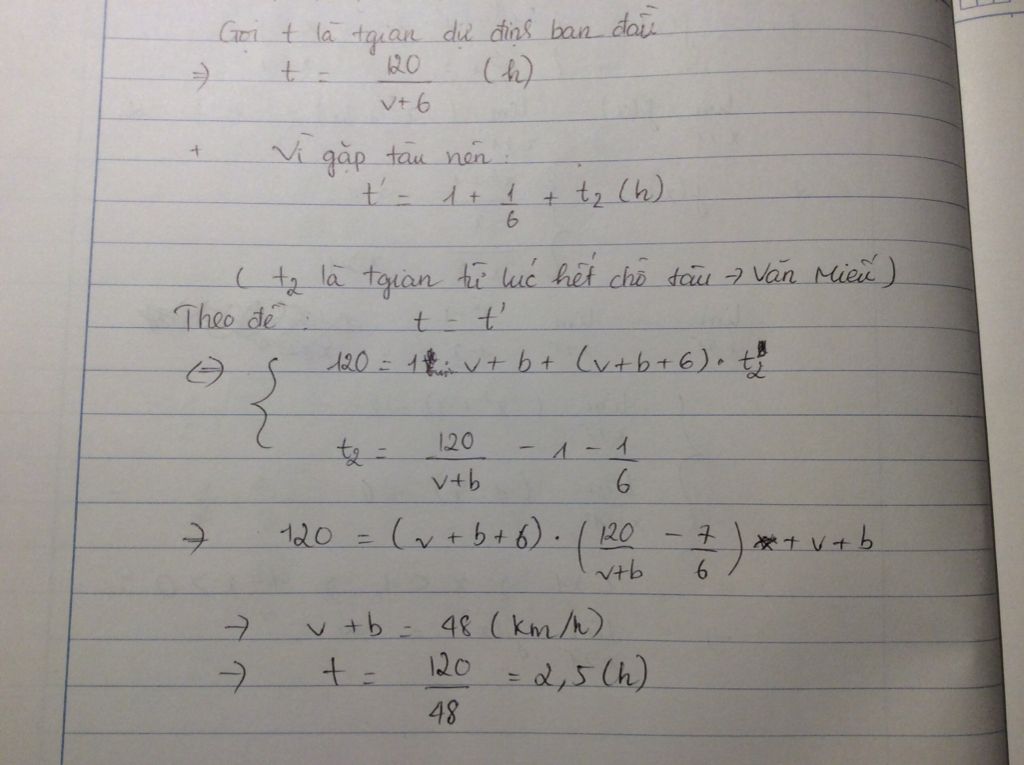 Gọi t là tgian dự định ban đầu
⇒ t = 120/(v+6) (h)
+ Vì gặp tàu nên :
t' = 1 + 1/6 + t₂ (h)
( t₂ là tgian từ lúc hết chờ tàu → Văn Miếu )
Theo đề : t = t'
⇔ { 120 = 1 v + b + (v+b+6) . t₂
t₂ = 120/(v+b) - 1 - 1/6
⇒ 120 = (v+b+6) . (120/(v+b) - 7/6) + v + b
→ v + b = 48 (km/h)
→ t = 120/48 = 2,5 (h)